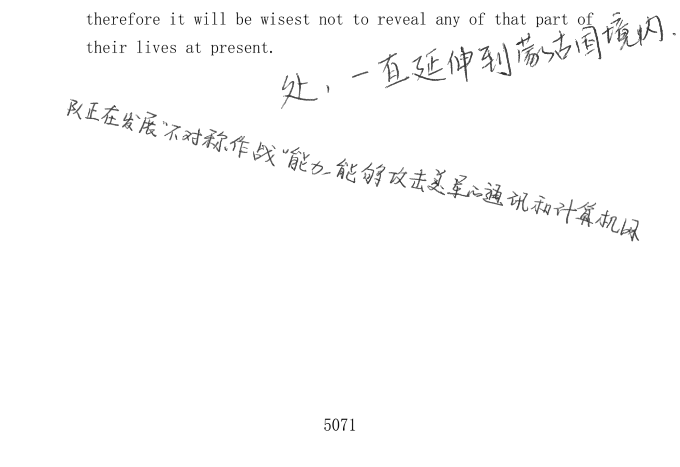 therefore it will be wisest not to reveal any of that part of
their lives at present.
处，一直延伸到蒙古国境内.
队正在发展“不对称作战“能力_能够攻击美军心通讯和计算机网
5071